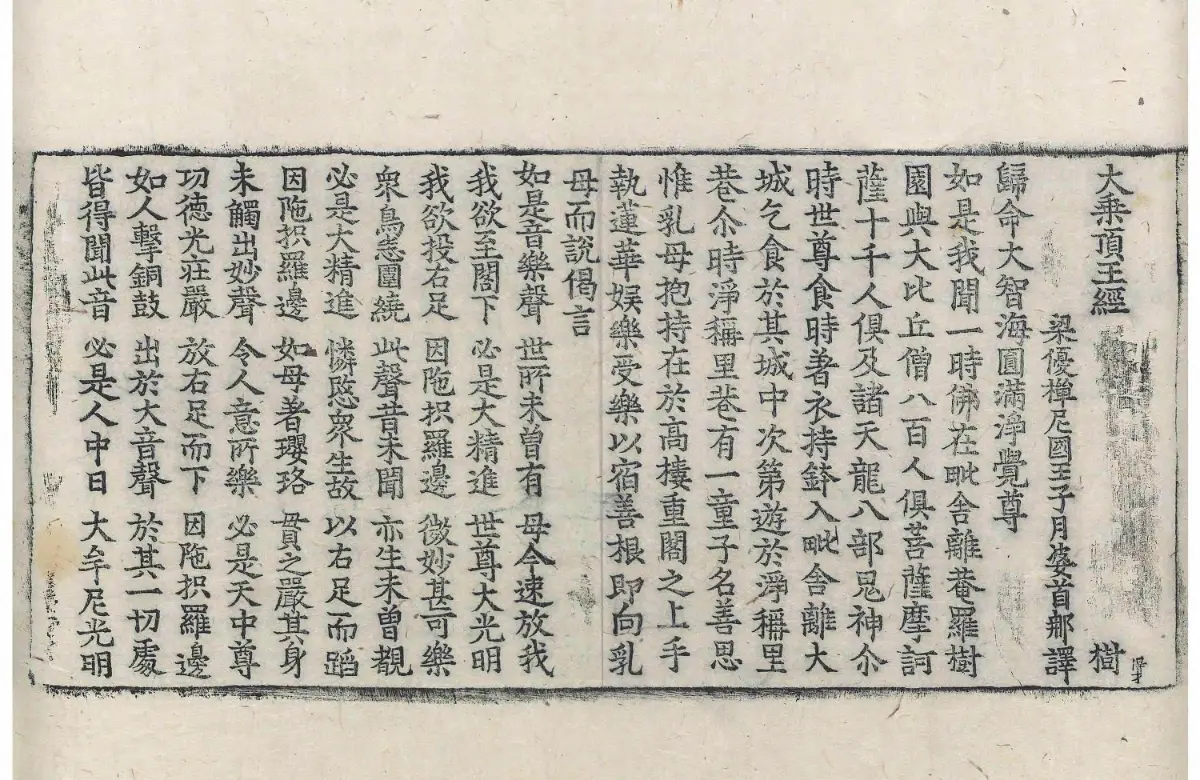 大乗頂王經 樹
梁優禪尼國王子月婆首那譯
歸命大智海圓滿淨覺尊
如是我聞一時佛在毗舍離菴羅樹
園與大比丘僧八百人俱菩薩摩訶
薩十千人俱及諸天龍八部鬼神尒
時世尊食時著衣持鉢入毗舍離大
城乞食於其城中次第遊於淨稱里
巷尒時淨稱里巷有一童子名善思
惟乳母抱持在於高樓重閣之上手
執蓮華娛樂受樂以宿善根即向乳
母而說偈言
如是音樂聲 世所未曾有 母今速放我
我欲至閣下 必是大精進 世尊大光明
我欲投右足 因陁抧羅邊 微妙甚可樂
衆鳥悉圍繞 此聲昔未聞 亦生未曾覩
必是大精進 憐愍衆生故 以右足而蹈
因陁抧羅邊 如母著瓔珞 貫之嚴其身
未觸出妙聲 令人意所樂 必是天中尊
功德光莊嚴 放右足而下 因陁抧羅邊
如人擊銅鼓 出於大音聲 於其一切處
皆得聞此音 必是人中日 大牟尼光明